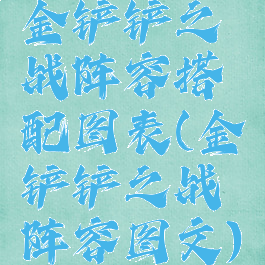 金铲铲之
战阵容搭
配图表(金
铲铲之战
阵容图文)